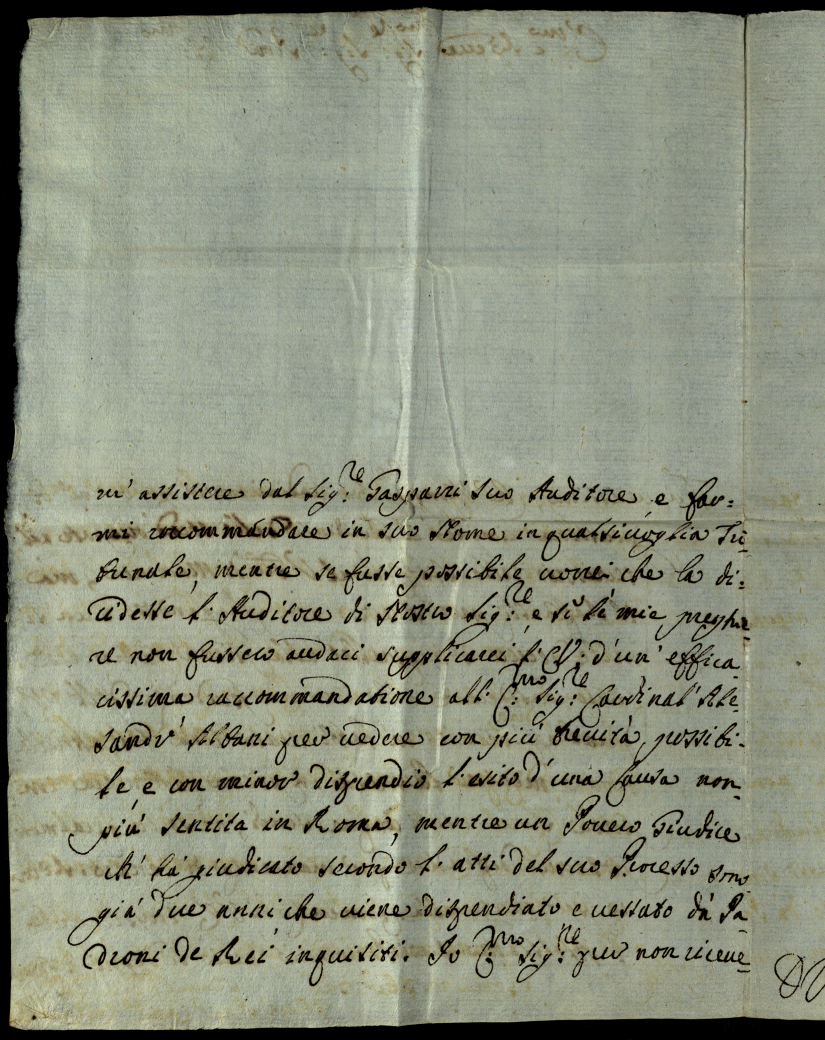 m' assistere dal Sig:re Gasparri suo Auditore, e far=
mi raccommandare in suo Nome in qualsivoglia Tri=
bunale, mentre se fusse possibile vorrei che la di:
videsse l'Auditore di Nostro Sig:re, e si lé mie preghie=
re non fussero audaci supplicarei l' d'un' effica
cissima raccommandatione all' E:mo Sig:re Cardinal' Ale=
sandr' Albani per vedere con più brevità possibi-
le, e con minor dispendio l'esito d'una Causa non
più sentita in Roma, mentre un Povero Giudice
ch' há giudicato secondo l'atti del suo Processo sono
già due anni che viene dispendiato e vessato dá Pa
droni de Rei inquisiti. Io E:mo Sig:re per non riceve=